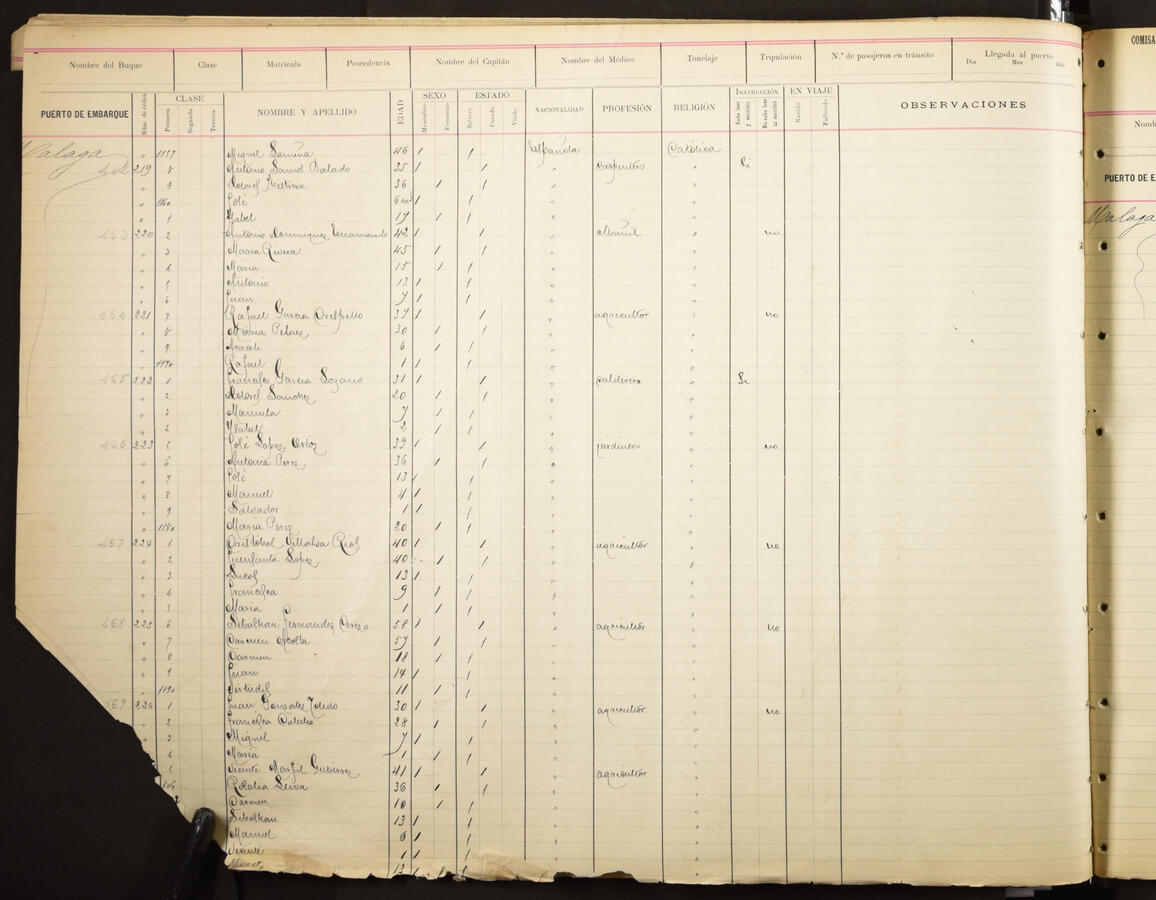 Nombre del Buque Clase Matrícula Procedencia Nombre del Capitán Nombre del Médico Tonelaje Tripulación N.º de pasajeros en tránsito Llegada al puerto
Dia Mes Año
PUERTO DE EMBARQUE Núm. de orden CLASE Primera Segunda Tercera NOMBRE Y APELLIDO EDAD SEXO Masculino Femenino ESTADO Soltero Casado Viudo NACIONALIDAD PROFESIÓN RELIGIÓN INSTRUCCIÓN Sabe leer y escribir No sabe leer ni escribir EN VIAJE Nacido Fallecido OBSERVACIONES
Malaga " 1157 Miguel 46 / / Española Católica
462 219 8 Antonio 35 / / " carpintero " Si
" 9 Dolores 36 / / " "
" 1160 José / / " "
" 1 Isabel 17 / / " "
463 220 2 Antonio Dominguez Enamorado 42 / / " albañil " no
" 3 Maria Rivera 45 / / " "
" 4 Maria 15 / / " "
" 5 Antonio 13 / / " "
" 6 Juan 7 / / " "
464 221 7 Rafael Garcia Crespillo 37 / / " agricultor " no
" 8 Maria Pelaez 30 / / " "
" 9 Araceli 6 / / " "
" 1170 Rafael 1 / / " "
465 222 1 Francisco Garcia Lozano 31 / / " calderero " Si
" 2 Dolores Sanchez 20 / / " "
" 3 Manuela 7 / / " "
" 4 Ysabel 2 / / " "
466 223 5 José Lopez Ortiz 39 / / " jardinero " no
" 6 Antonia Perez 36 / / " "
" 7 José 13 / / " "
" 8 Manuel 4 / / " "
" 9 Salvador 1 / / " "
" 1180 Maria Perez 20 / / " "
467 224 1 Cristóbal Villalva Rios 40 / / " agricultor " no
" 2 Fuensanta Lopez 40 / / " "
" 3 Lucas 13 / / " "
" 4 Francisca 9 / / " "
" 5 Maria 1 / / " "
468 225 6 Sebastian Fernandez Cerezo 58 / / " agricultor " no
" 7 Carmen Acosta 57 / / " "
" 8 Carmen 18 / / " "
" 9 Juan 14 / / " "
" 1190 Gertrudis 11 / / " "
469 226 1 Juan Gonzalez Toledo 30 / / " agricultor " no
" 2 Francisca 28 / / " "
" 3 Miguel 7 / / " "
" 4 Maria 1 / / " "
5 Vicente Marfil Gutierrez 41 / / " agricultor "
Rosalia Leiva 36 / / " "
Carmen 10 / / " "
Sebastian 13 / / " "
Manuel 6 / / " "
Vicente 1 / / " "
12 / /
COMISA
Nomb
PUERTO DE E
Malaga